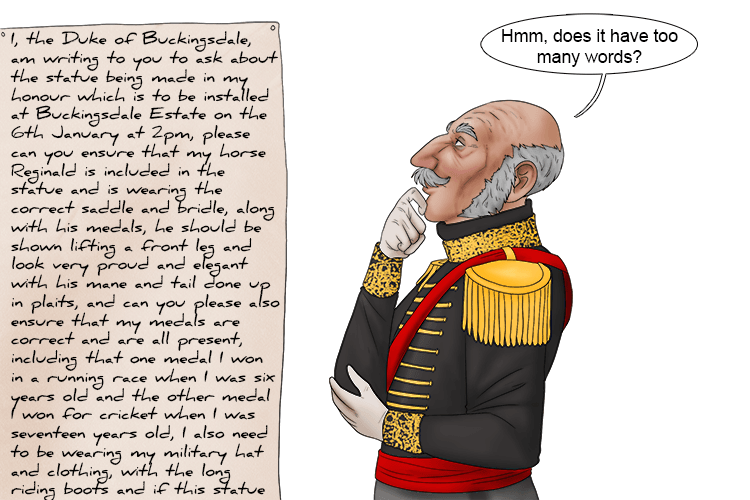 I, the Duke of Buckingsdale,
am writing to you to ask about
the statue being made in my
honour which is to be installed
at Buckingsdale Estate on the
6th January at 2pm, please
can you ensure that my horse
Reginald is included in the
statue and is wearing the
correct saddle and bridle, along
with his medals, he should be
shown lifting a front leg and
look very proud and elegant
with his mane and tail done up
in plaits, and can you please also
ensure that my medals are
correct and are all present,
including that one medal I won
in a running race when I was six
years old and the other medal
I won for cricket when I was
seventeen years old, I also need
to be wearing my military hat
and clothing, with the long
riding boots and if this statue
Hmm, does it have too
many words?